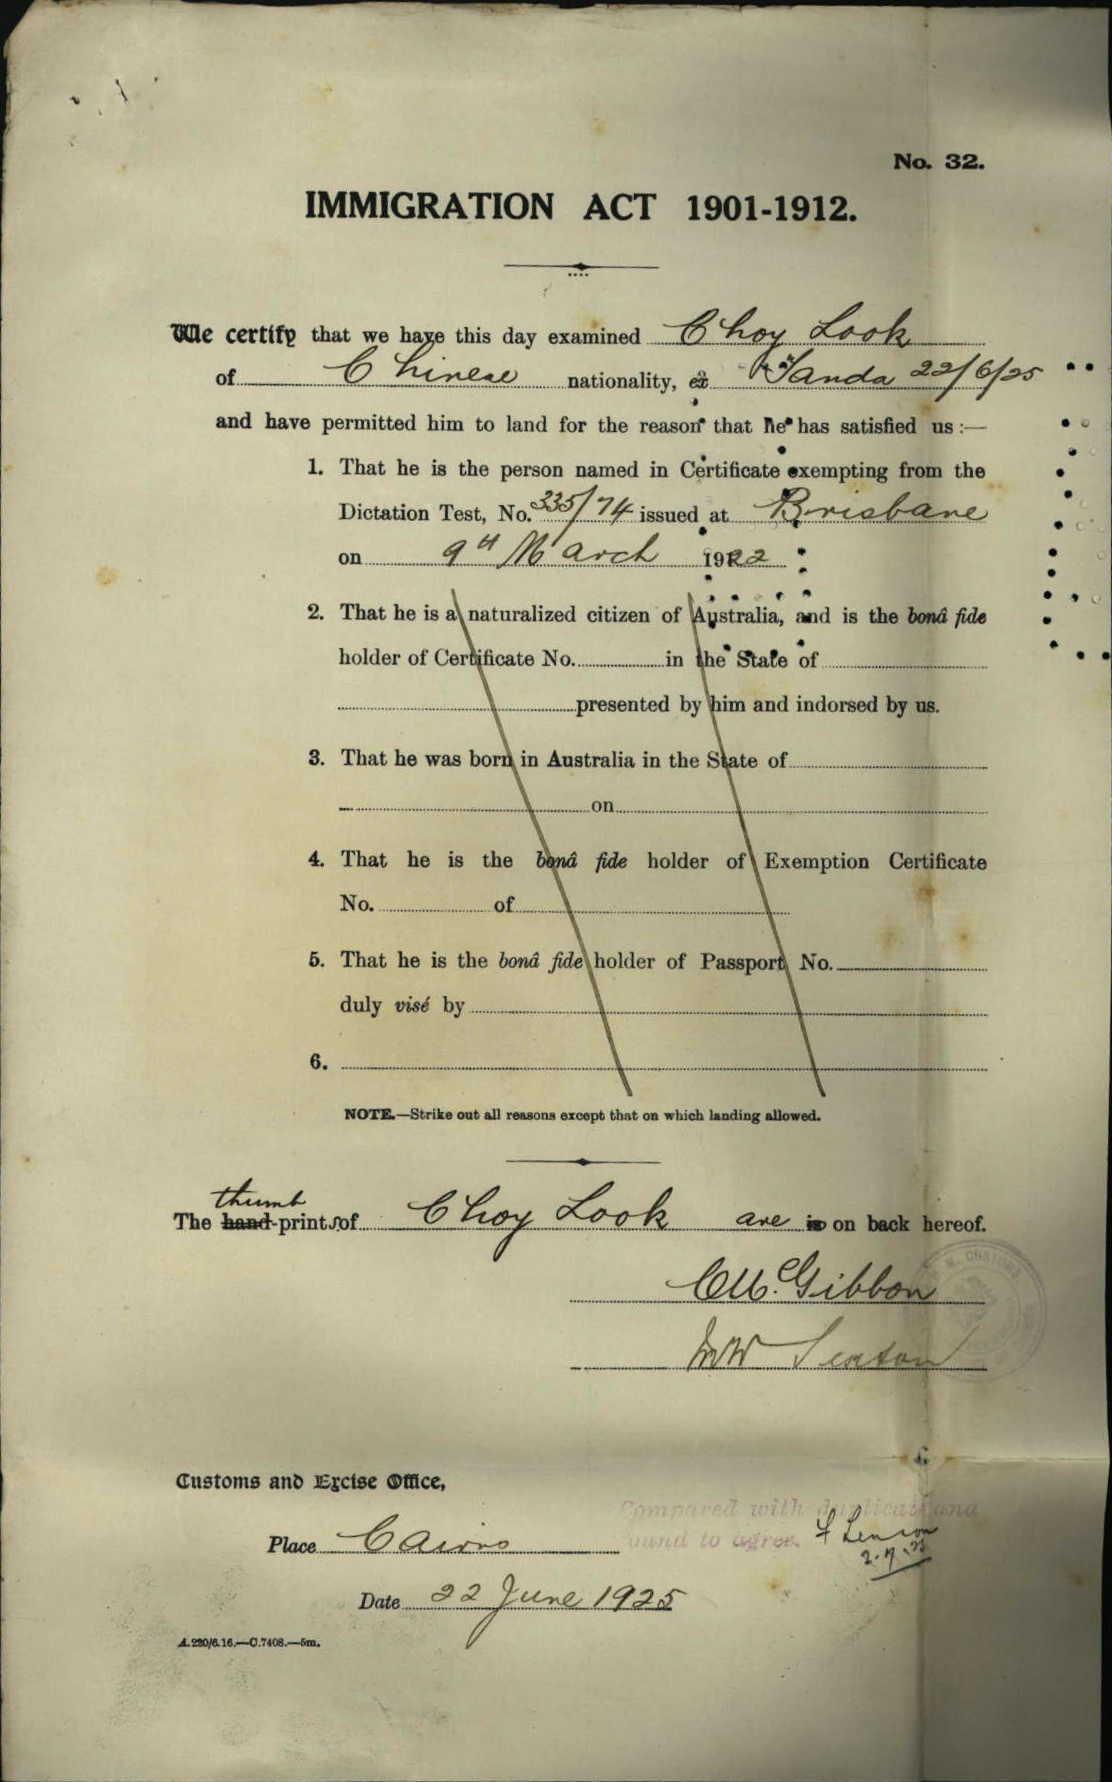 No. 32.
IMMIGRATION ACT 1901-1912.
We certify that we have this day examined Choy Look
of Chinese nationality, ex "Tanda 22/6/25
and have permitted him to land for the reason that he has satisfied us :—
1. That he is the person named in Certificate exempting from the
Dictation Test, No. 335/74 issued at Brisbane
on 9th March 1922
2. That he is a naturalized citizen of Australia, and is the bonâ fide
holder of Certificate No. in the State of
presented by him and indorsed by us.
3. That he was born in Australia in the State of
on
4. That he is the bonâ fide holder of Exemption Certificate
No. of
5. That he is the bonâ fide holder of Passport No.
duly visé by
6.
NOTE.—Strike out all reasons except that on which landing allowed.
thumb
The hand-prints of Choy Look are is on back hereof.
McGibbon
Customs and Excise Office,
Compared with duplicate and
found to agree.
Place Cairns
Date 22 June 1925
A.220/6.16.—C.7408.—5m.